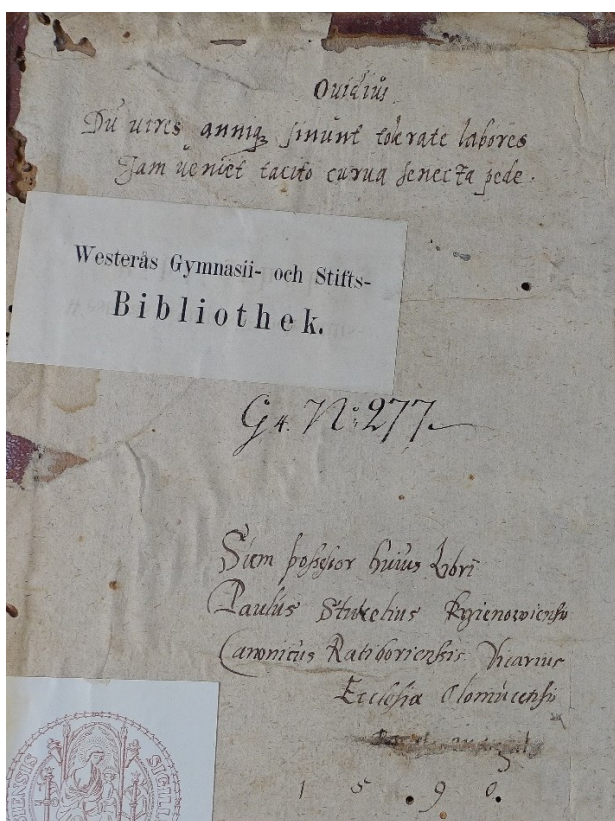 Ovidius
Dū vires anniq; sinunt tolerate labores
Jam veniet tacito curva senecta pede.
Westerås Gymnasii- och Stifts-
Bibliothek.
G 4. No: 277
Sum possessor huius Libri
Paulus
Canonicus Ratiboriensis Vicarius
Ecclesiæ Olomucensis
1590.
SIGILL